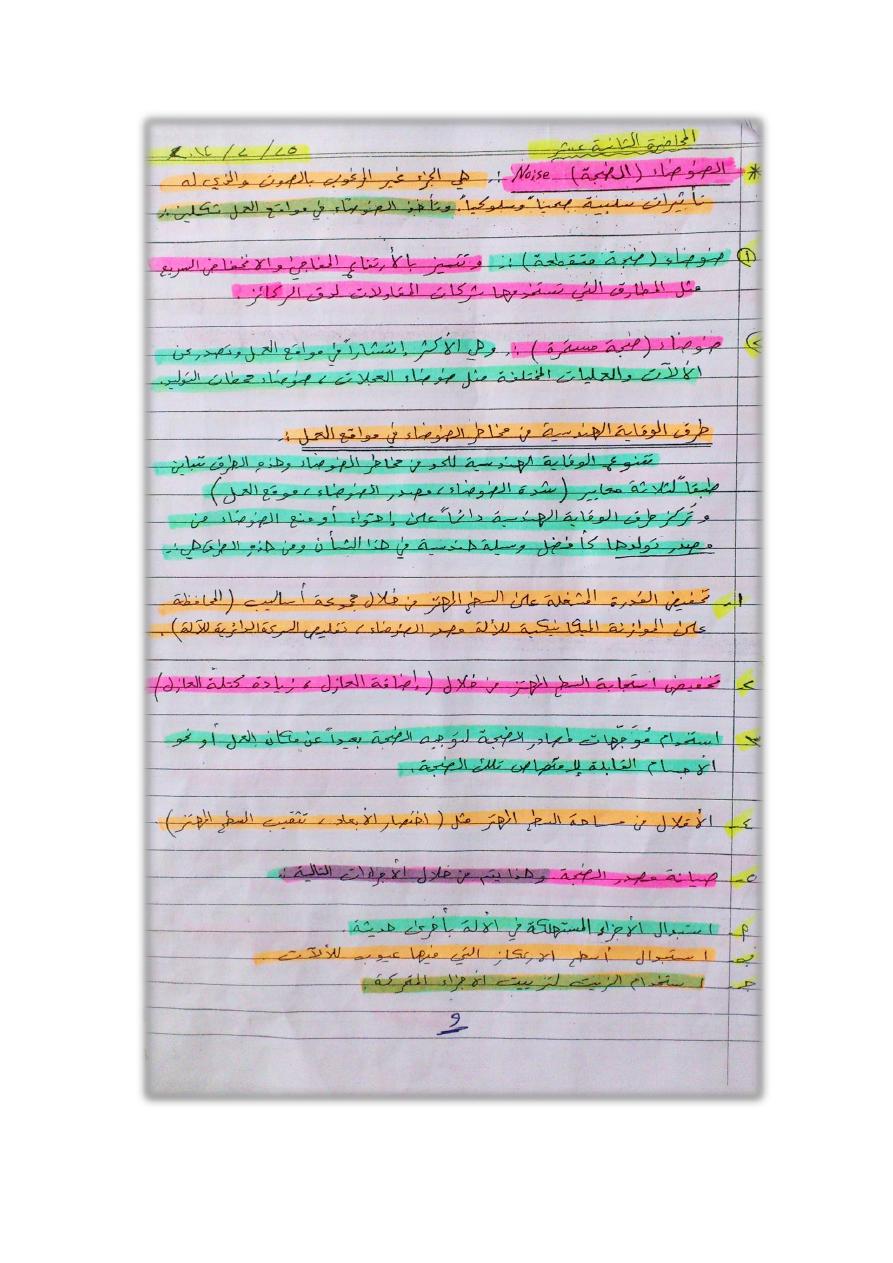 المحاضرة الثانية عشر
* الضوضاء (الضجة) Noise :- هي الجزء غير المرغوب بالصوت والذي له
تأثيرات سلبية صحياً وسلوكياً وتأخذ الضوضاء في مواقع العمل شكلين :-
① ضوضاء (ضجة متقطعة) :- وتتميز بالأرتفاع المفاجئ والانخفاض السريع
مثل المطارق التي تستخدمها شركات المقاولات لدق الركائز .
② ضوضاء (ضجة مستمرة) :- وهي الأكثر إنتشاراً في مواقع العمل وتصدر عن
الآلات والعمليات المختلفة مثل ضوضاء العجلات ، ضوضاء محطات التوليد.
طرق الوقاية الهندسية من مخاطر الضوضاء في مواقع العمل :
تتنوع الوقاية الهندسية للحد من مخاطر الضوضاء وهذه الطرق تتباين
طبقاً لثلاثة معايير (شدة الضوضاء ، مصدر الضوضاء ، موقع العمل)
وتركز طرق الوقاية الهندسية دائماً على إحتواء أو منع الضوضاء من
مصدر تولدها كأفضل وسيلة هندسية في هذا الشأن ومن هذه الطرق هي :-
١- تخفيض القدرة المشغلة على السطح المهتز من خلال مجموعة أساليب (المحافظة
على الموازنة الميكانيكية للآلة مصدر الضوضاء ، تقليص السرعة الدائرية للآلة) .
٢- تخفيض استجابة السطح المهتز من خلال (إضافة العازل ، زيادة كتلة العازل)
٣- استخدام مُوَجّهات لمصادر الضجة لتوجيه الضجة بعيداً عن مكان العمل أو نحو
الاجسام القابلة لإمتصاص تلك الضجة .
٤- الأقلال من مساحة السطح المهتز مثل (اختصار الأبعاد ، تثقيب السطح المهتز)
٥- صيانة مصدر الضجة وهذا يتم من خلال الأجراءات التالية :
أ- استبدال الأجزاء المستهلكة في الآلة بأخرى حديثة
ب- استبدال أسطح الارتكاز التي فيها عيوب للآلات
جـ- استخدام الزيت لتزييت الأجزاء المتحركة
9